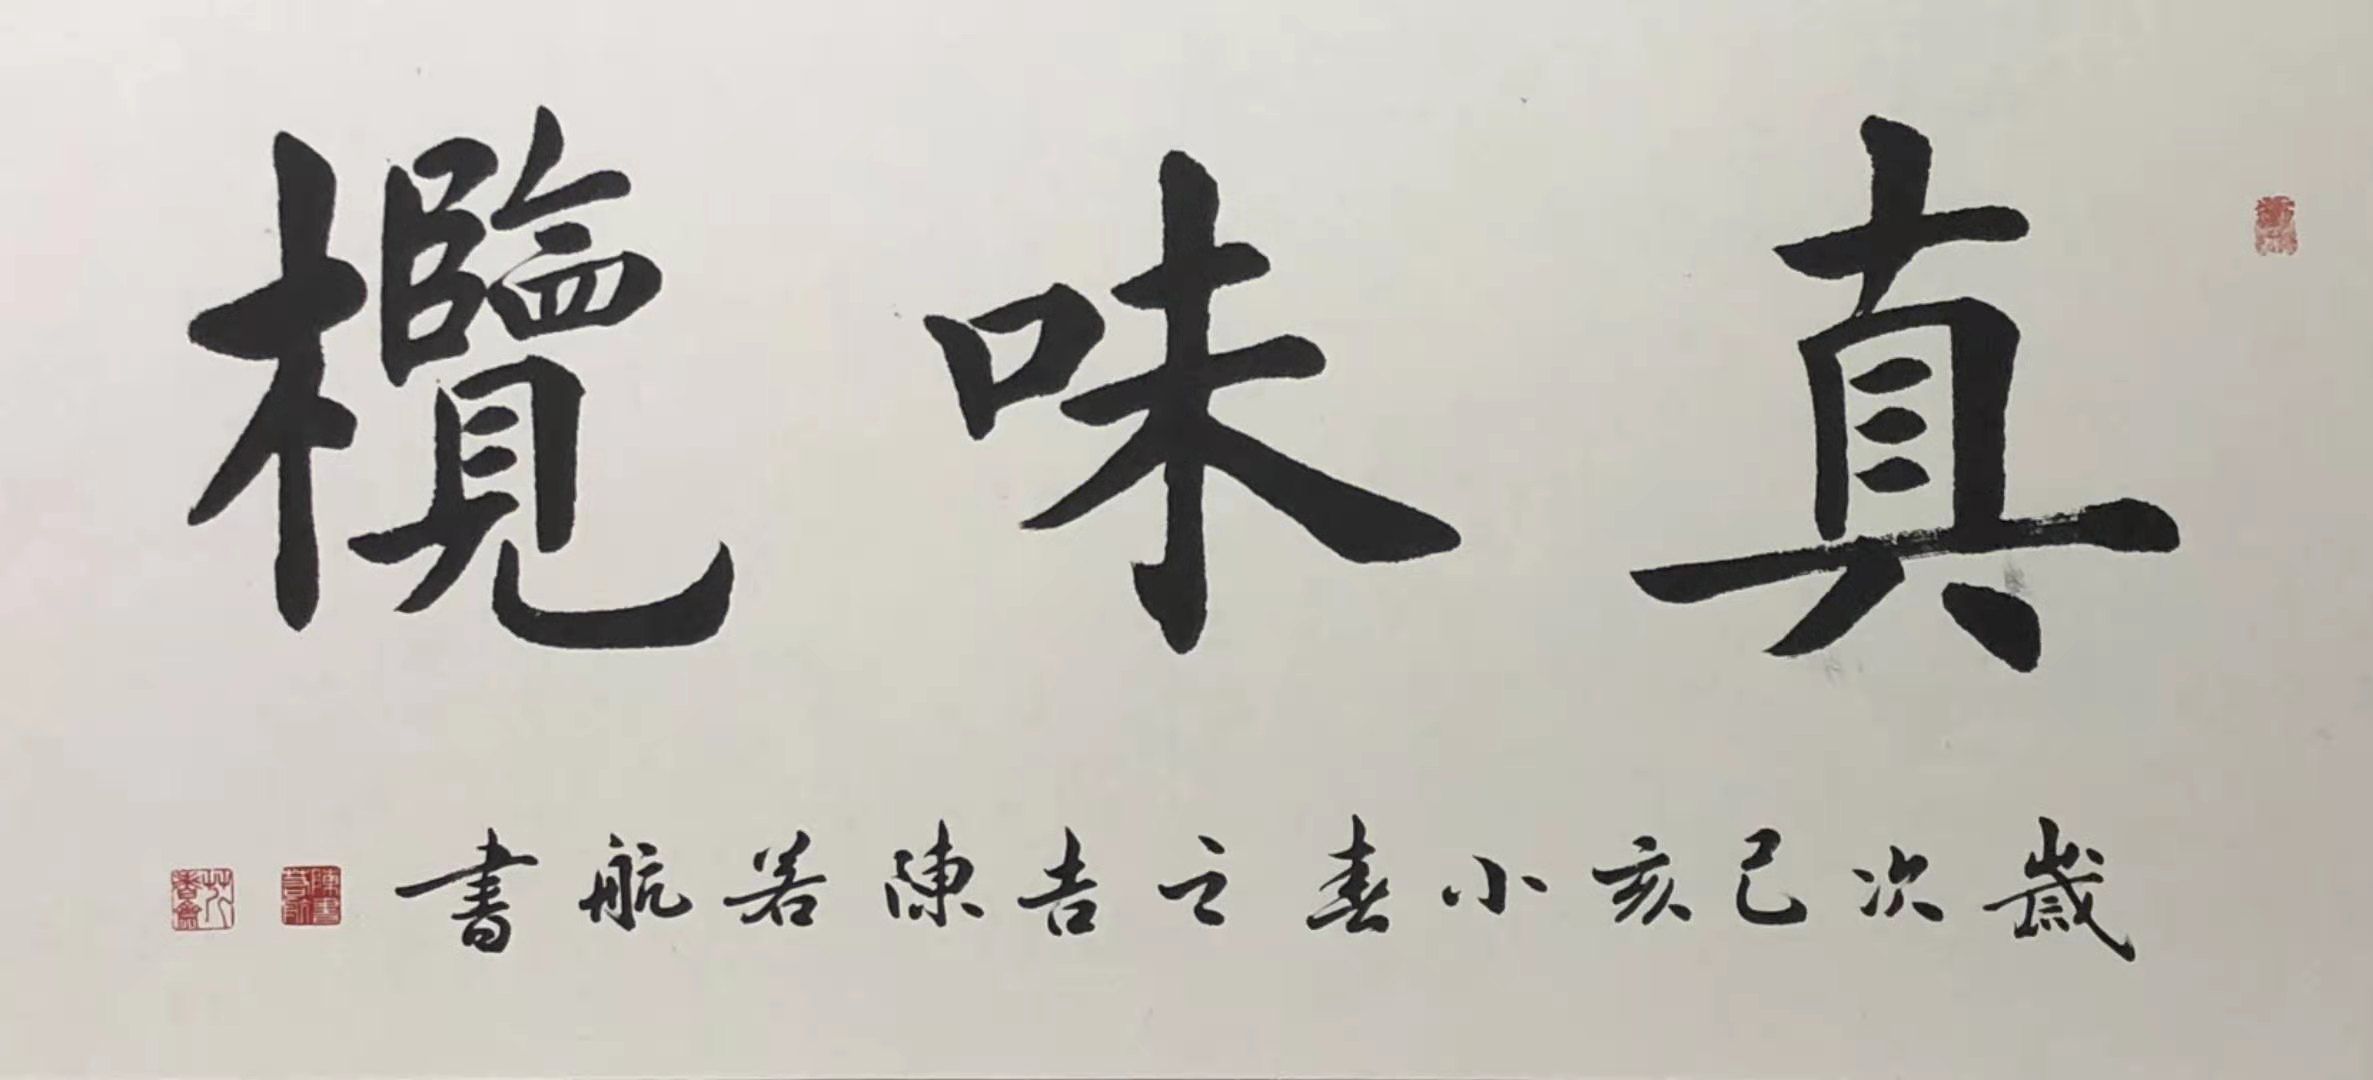 真味欖
歲次己亥小春之吉陳若航書